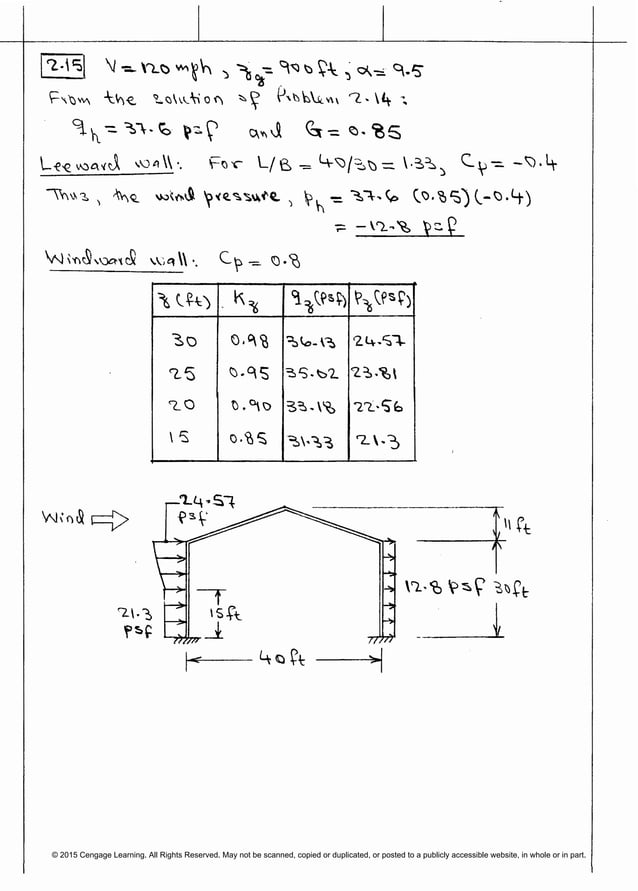 2.15 V = 120 mph, z_g = 900 ft, α = 9.5
From the solution of Problem 2.14:
q_h = 37.6 psf and G = 0.85
Leeward wall: For L/B = 40/30 = 1.33, C_p = -0.4
Thus, the wind pressure, p_h = 37.6 (0.85)(-0.4)
= -12.8 psf
Windward wall: C_p = 0.8
z (ft) K_z q_z (psf) p_z (psf)
30 0.98 36.13 24.57
25 0.95 35.02 23.81
20 0.90 33.18 22.56
15 0.85 31.33 21.3
24.57
psf
Wind
11 ft
12.8 psf 30 ft
21.3
psf
15 ft
40 ft
© 2015 Cengage Learning. All Rights Reserved. May not be scanned, copied or duplicated, or posted to a publicly accessible website, in whole or in part.